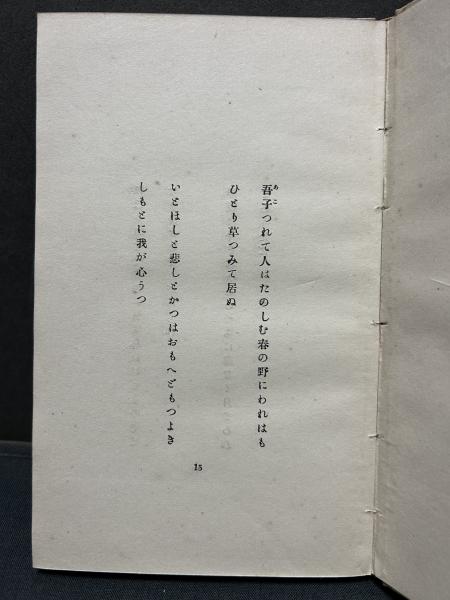 吾子つれて人はたのしむ春の野にわれはも
ひとり草つみて居ぬ
いとほしと悲しとかつはおもへどもつよき
しもとに我が心うつ
15